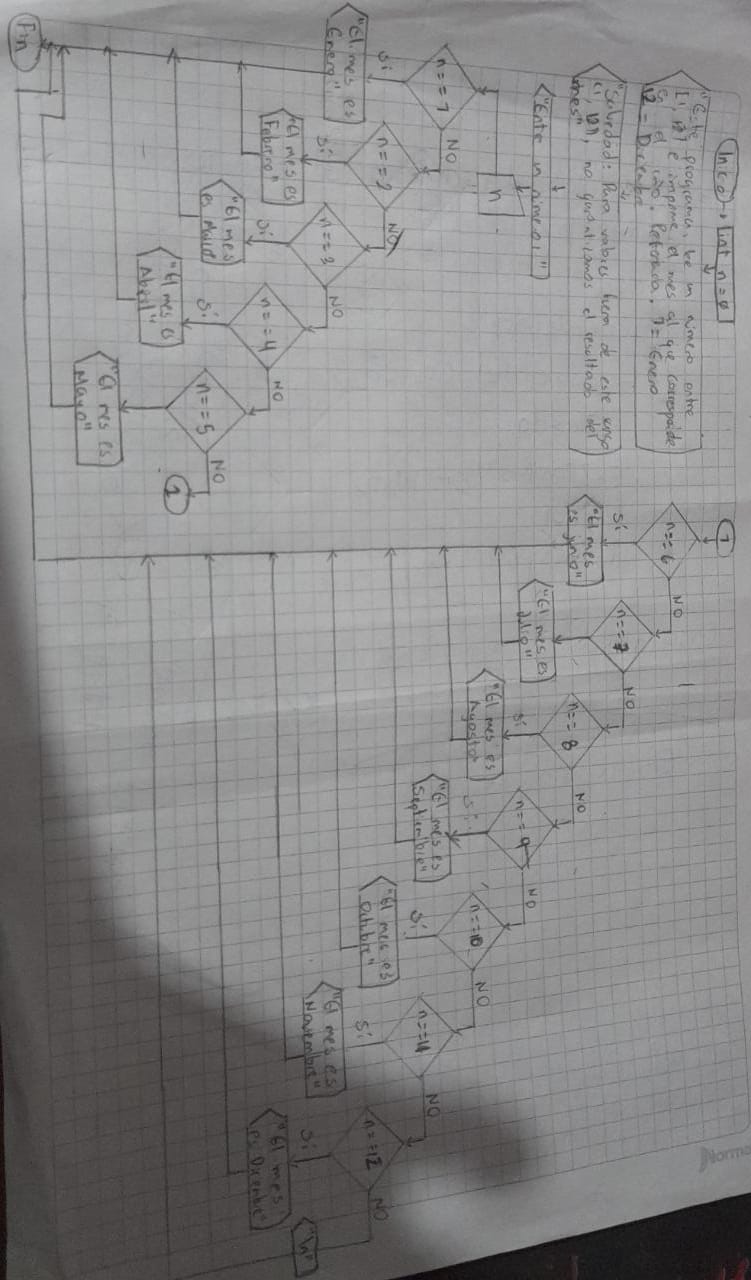 Inicio → int n = 0
"Este programa, lee un número entre
[1, 12] e imprime el mes al que corresponde
en el año. Reforzada, 1 = Enero
12 = Diciembre
"Salvedad: Para valores fuera de este rango
[1, 12], no garantizamos el resultado del
mes"
"Entre un número: "
n
n==1
NO
Sí
"El mes es
Enero"
n==2
NO
Sí
"El mes es
Febrero"
n==3
NO
Sí
"El mes
es Marzo"
n==4
NO
Sí
"El mes es
Abril"
n==5
NO
1
"El mes es
Mayo"
Fin
1
n==6
NO
Sí
"El mes
es junio"
n==7
NO
"El mes es
Julio"
n==8
NO
Sí
"El mes es
Agosto"
n==9
NO
Sí
"El mes es
Septiembre"
n==10
NO
Sí
"El mes es
Octubre"
n==11
NO
Sí
"El mes es
Noviembre"
n==12
NO
Sí
"El mes
es Diciembre"
"\n"
Norma